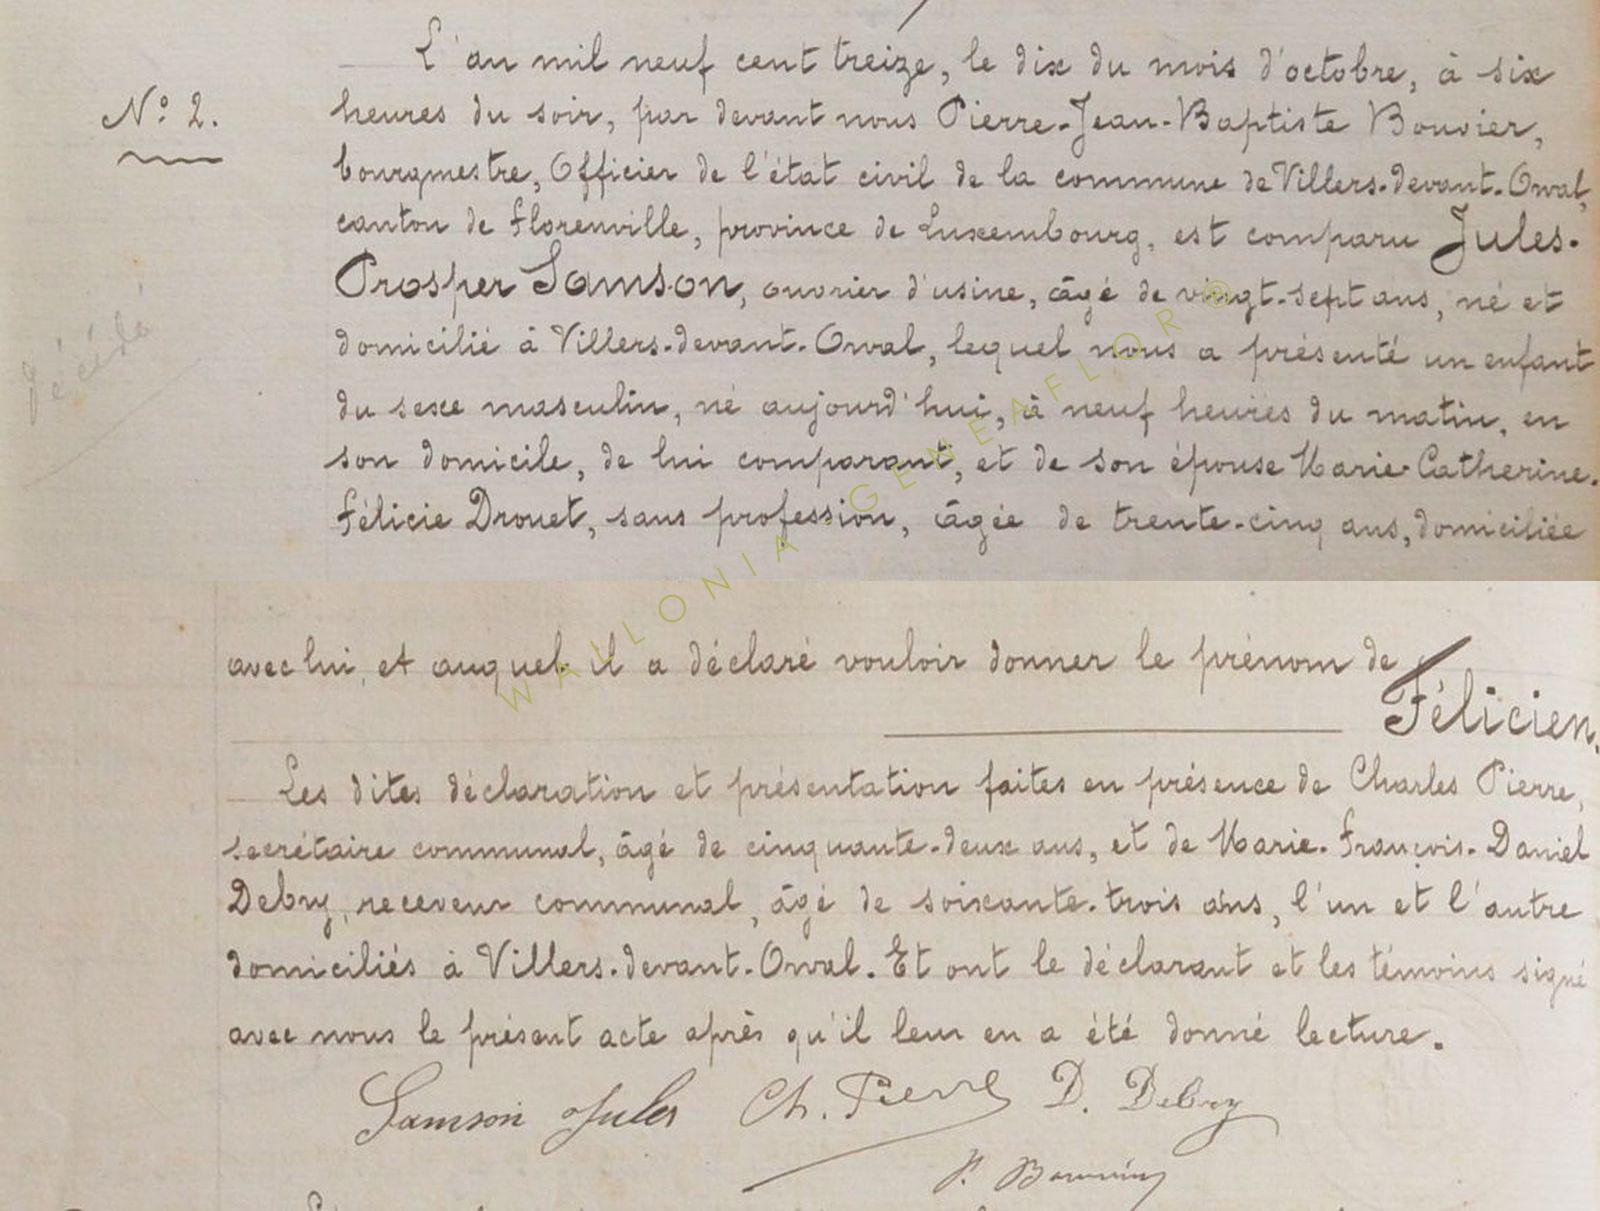 L'an mil neuf cent treize, le dix du mois d'octobre, à six
N° 2.
heures du soir, par devant nous Pierre-Jean-Baptiste Bouvier,
bourgmestre, Officier de l'état civil de la commune de Villers-devant-Orval,
canton de Florenville, province de Luxembourg, est comparu Jules-
Prosper Samson, ouvrier d'usine, âgé de vingt-sept ans, né et
domicilié à Villers-devant-Orval, lequel nous a présenté un enfant
décédé
du sexe masculin, né aujourd'hui, à neuf heures du matin, en
son domicile, de lui comparant, et de son épouse Marie-Catherine-
Félicie Drouet, sans profession, âgée de trente-cinq ans, domiciliée
avec lui, et auquel il a déclaré vouloir donner le prénom de
Félicien.
Les dites déclaration et présentation faites en présence de Charles Pierre,
secrétaire communal, âgé de cinquante-deux ans, et de Marie-François-Daniel
Debry, receveur communal, âgé de soixante-trois ans, l'un et l'autre
domiciliés à Villers-devant-Orval. Et ont le déclarant et les témoins signé
avec nous le présent acte après qu'il leur en a été donné lecture.
Samson Jules Ch. Pierre D. Debry
P. Bouvier
WALLONIA.GENEAFLOR®